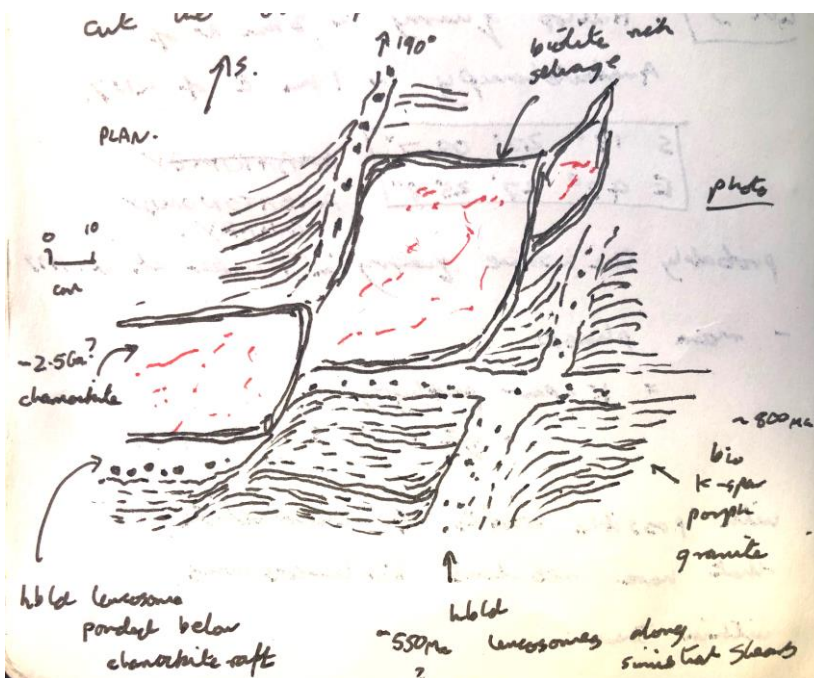 cut the
↑190°
↑S.
biotite rich
selvage
PLAN.
photo
0 10
cm
~2.5Ga?
charnockite
~800Ma
bio
K-spar
porph
granite
hbld leucosome
ponded below
charnockite raft
hbld
~550Ma leucosomes along
? sinistral shears